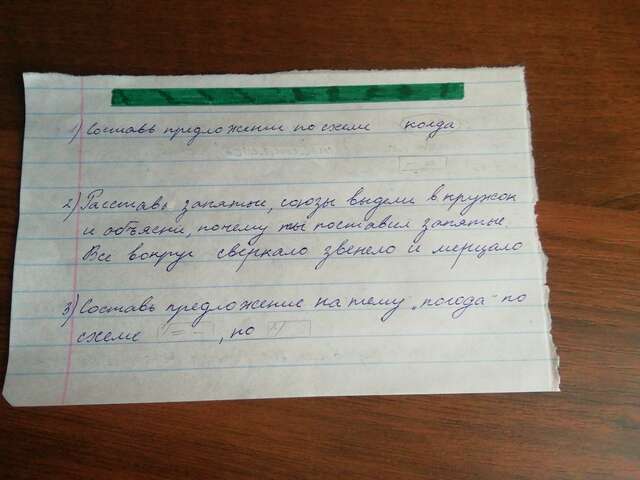 1) Составь предложение по схеме когда
2) Расставь запятые, союзы выдели в кружок
и объясни, почему ты поставил запятые.
Все вокруг сверкало звенело и мерцало
3) Составь предложение на тему „погода" по
схеме , но